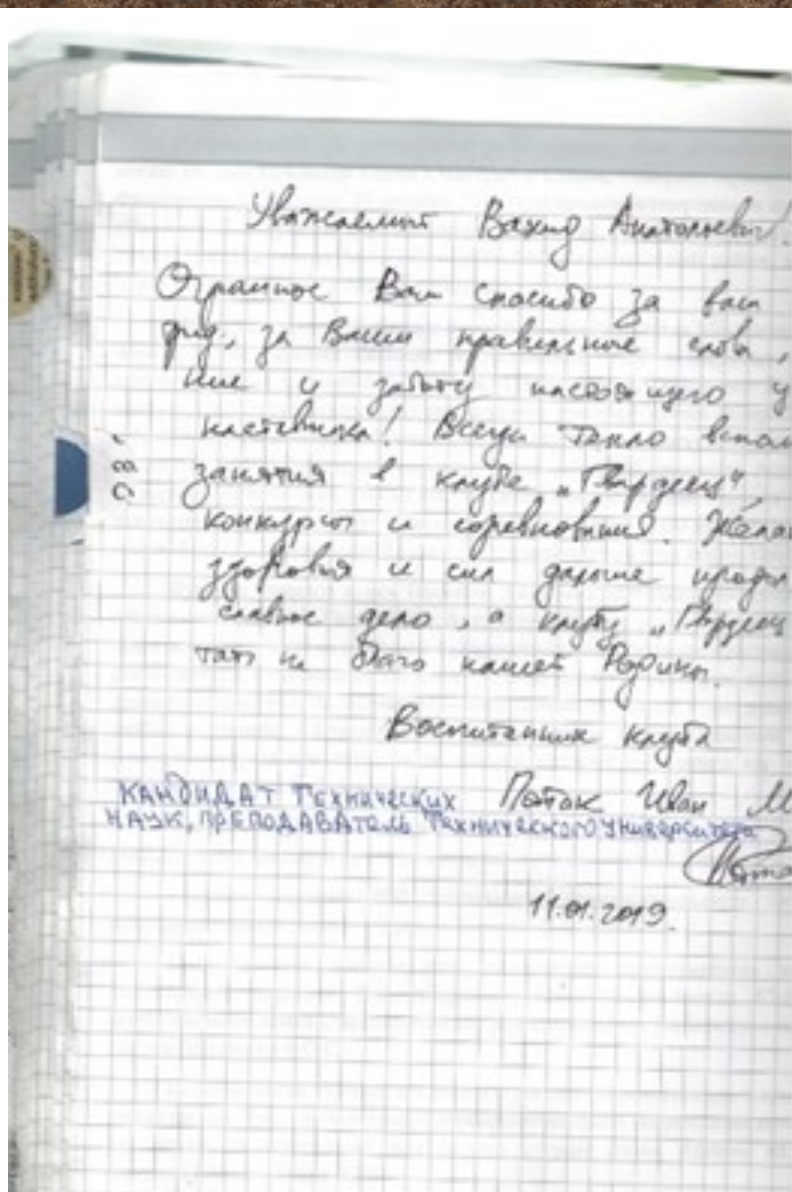 Уважаемый Вахид Анатольевич!
Огромное Вам спасибо за ваш
труд, за Ваши правильные слова,
ние и заботу настоящего у
наставника! Всегда тепло вспом
занятия в клубе „Гвардеец“,
конкурсы и соревнования. Желаю
здоровья и сил дальше продол
славное дело, а клубу „Гвардеец
на благо нашей Родины.
Воспитанник клуба
Поток Иван М
КАНДИДАТ ТЕХНИЧЕСКИХ
НАУК, ПРЕПОДАВАТЕЛЬ ТЕХНИЧЕСКОГО УНИВЕРСИТЕТА
11.01.2019.